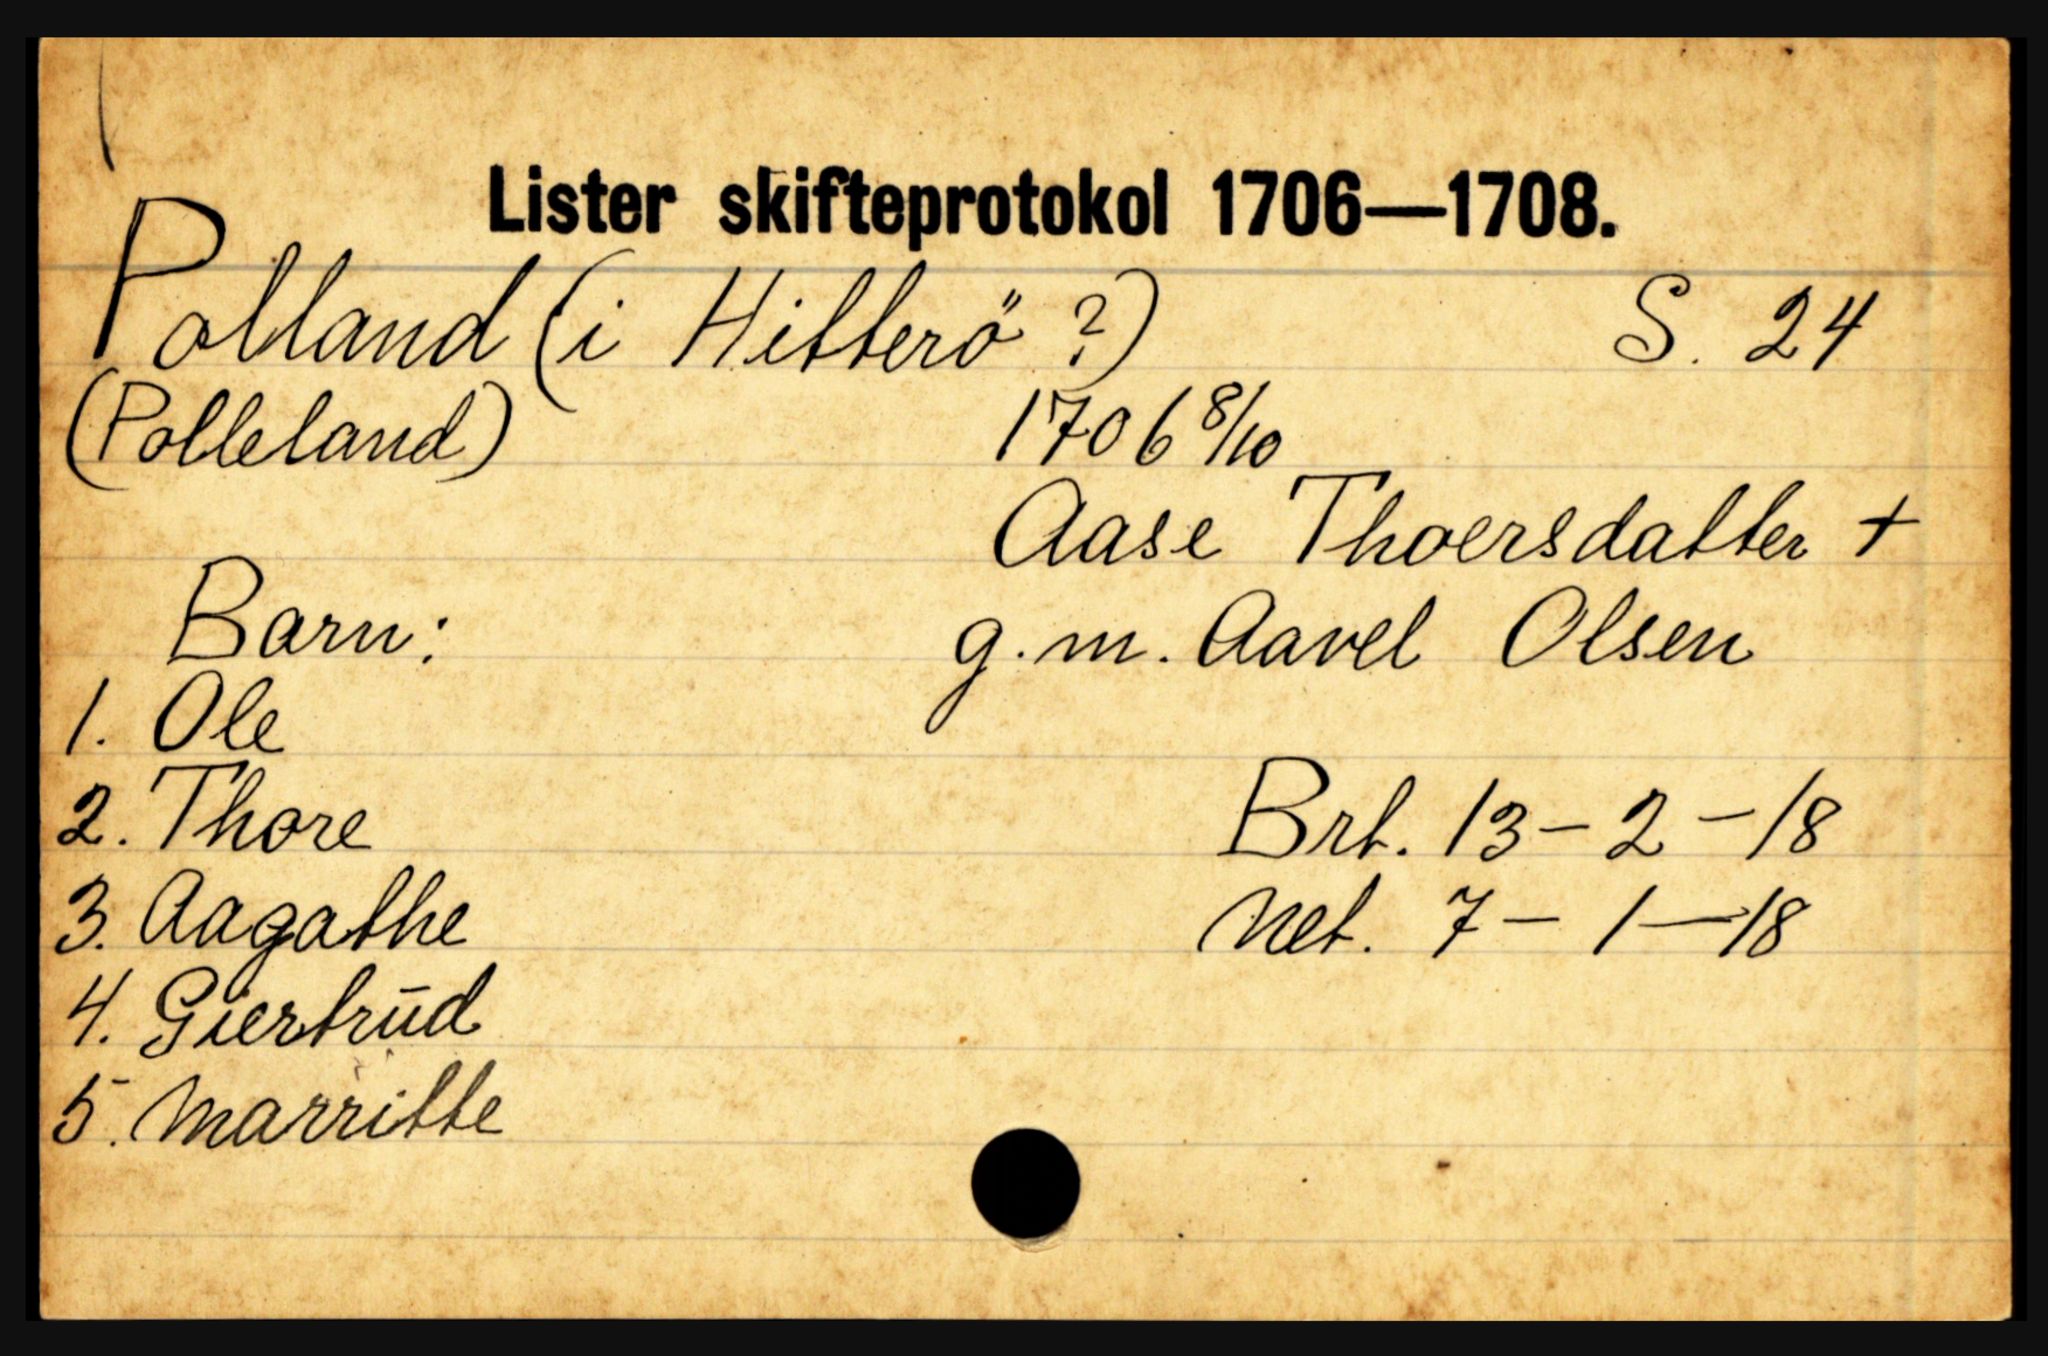 Lister skifteprotokol 1706—1708.
Polland (i Hitterö ?) S. 24
(Polleland) 1706 8/10
Aase Thoersdatter +
Barn: g.m. Aavel Olsen
1. Ole
2. Thore Brt. 13-2-18
3. Aagathe Net. 7-1-18
4. Giertrūd
5. Marritte